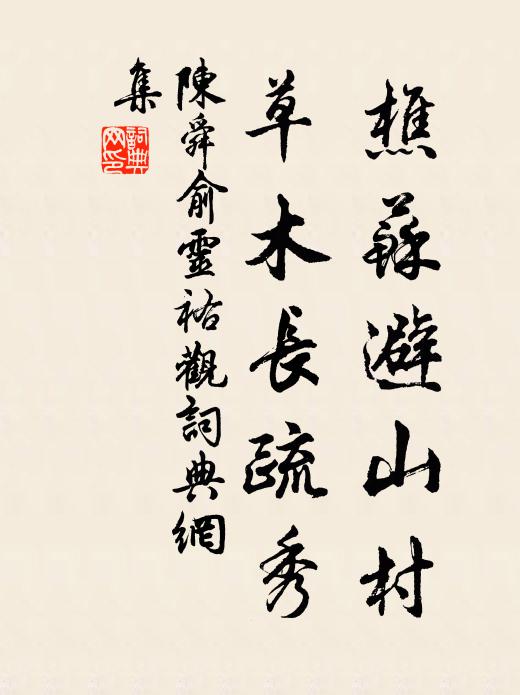 樵蘇避山村
草木長疏秀
陳舜俞靈祐觀詞典網
集
詞典網印